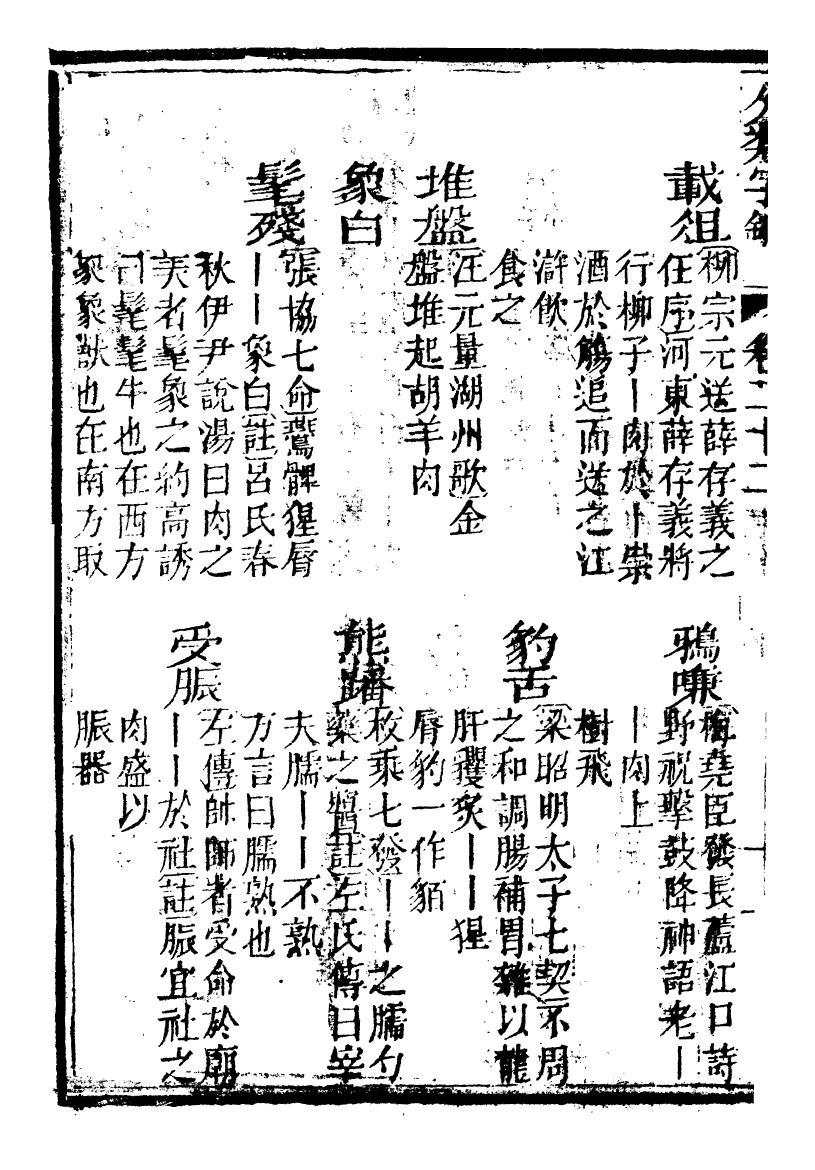 分類字錦 卷二十二 十
載俎
柳宗元送薛存義之
任序河東薛存義將
行柳子丨肉於丨崇
酒於觴追而送之江
滸飲
食之
堆盤
汪元量湖州歌金
盤堆起胡羊肉
象白
髦殘
張協七命鷰髀猩脣
丨丨象白註呂氏春
秋伊尹說湯曰肉之
美者髦象之約高誘
曰髦髦牛也在西方
象象獸也在南方取
鴉嗛
梅堯臣發長蘆江口詩
野祝擊鼓降神語老丨
丨肉上
樹飛
豹舌
梁昭明太子七契不周
之和調腸補胃雜以龍
肝玃炙丨丨猩
脣豹一作貊
熊蹯
枚乘七發丨丨之臑勺
藥之醬註左氏傳曰宰
夫臑丨丨不熟
方言曰臑熟也
受脤
左傳帥師者受命於廟
丨丨於社註脤宜社之
肉盛以
脤器